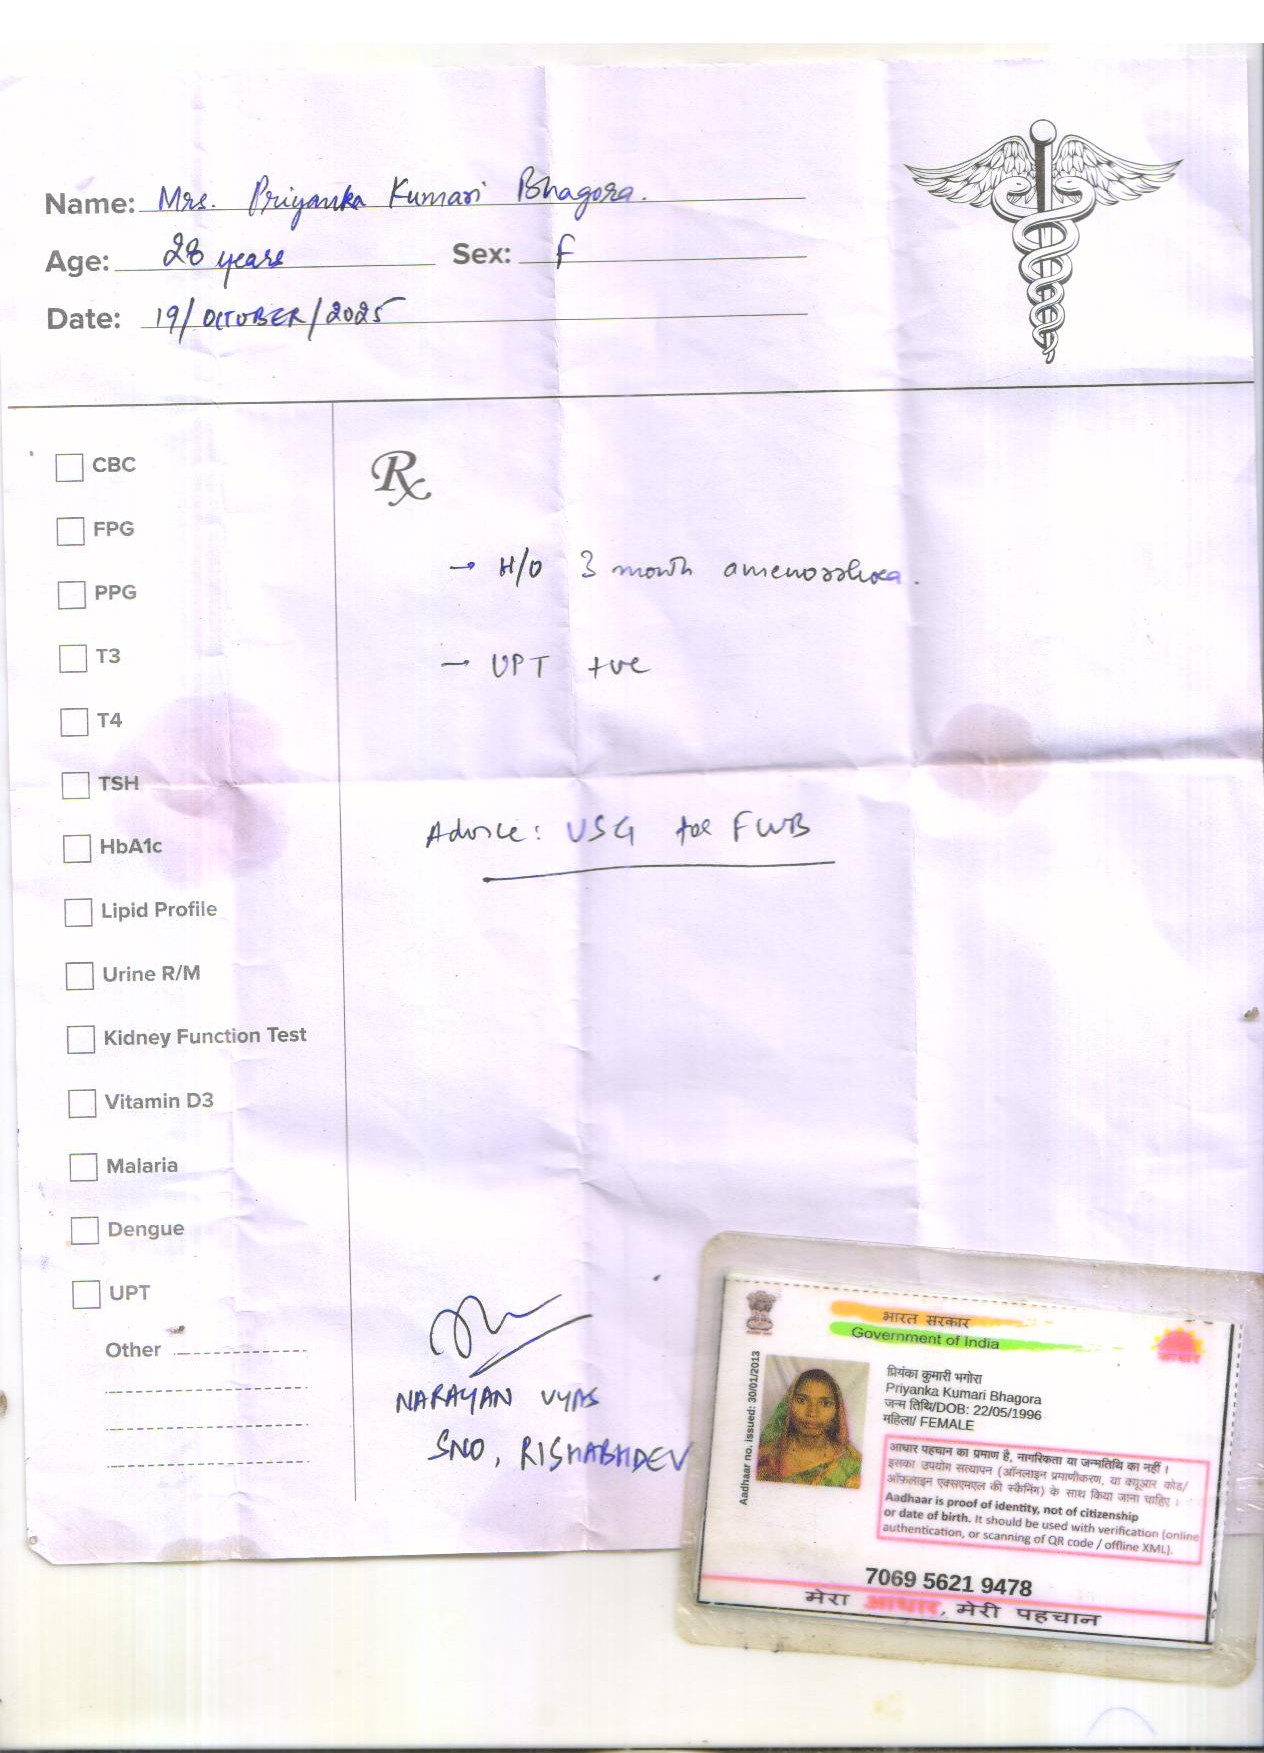 Name: Mrs. Priyanka Kumari Bhagora.
Age: 28 years Sex: F
Date: 19/OCTOBER/2025
CBC
FPG
PPG
T3
T4
TSH
HbA1c
Lipid Profile
Urine R/M
Kidney Function Test
Vitamin D3
Malaria
Dengue
UPT
Other
Rx
→ H/O 3 month amenorrhoea.
→ UPT +ve
Advice: USG for FWB
NARAYAN VYAS
SNO, RISHABHDEV
भारत सरकार
Government of India
आधार
Aadhaar no. issued: 30/01/2013
प्रियंका कुमारी भगोरा
Priyanka Kumari Bhagora
जन्म तिथि/DOB: 22/05/1996
महिला/ FEMALE
आधार पहचान का प्रमाण है, नागरिकता या जन्मतिथि का नहीं ।
इसका उपयोग सत्यापन (ऑनलाइन प्रमाणीकरण, या क्यूआर कोड/
ऑफलाइन एक्सएमएल की स्कैनिंग) के साथ किया जाना चाहिए ।
Aadhaar is proof of identity, not of citizenship
or date of birth. It should be used with verification (online
authentication, or scanning of QR code / offline XML).
7069 5621 9478
मेरा आधार, मेरी पहचान